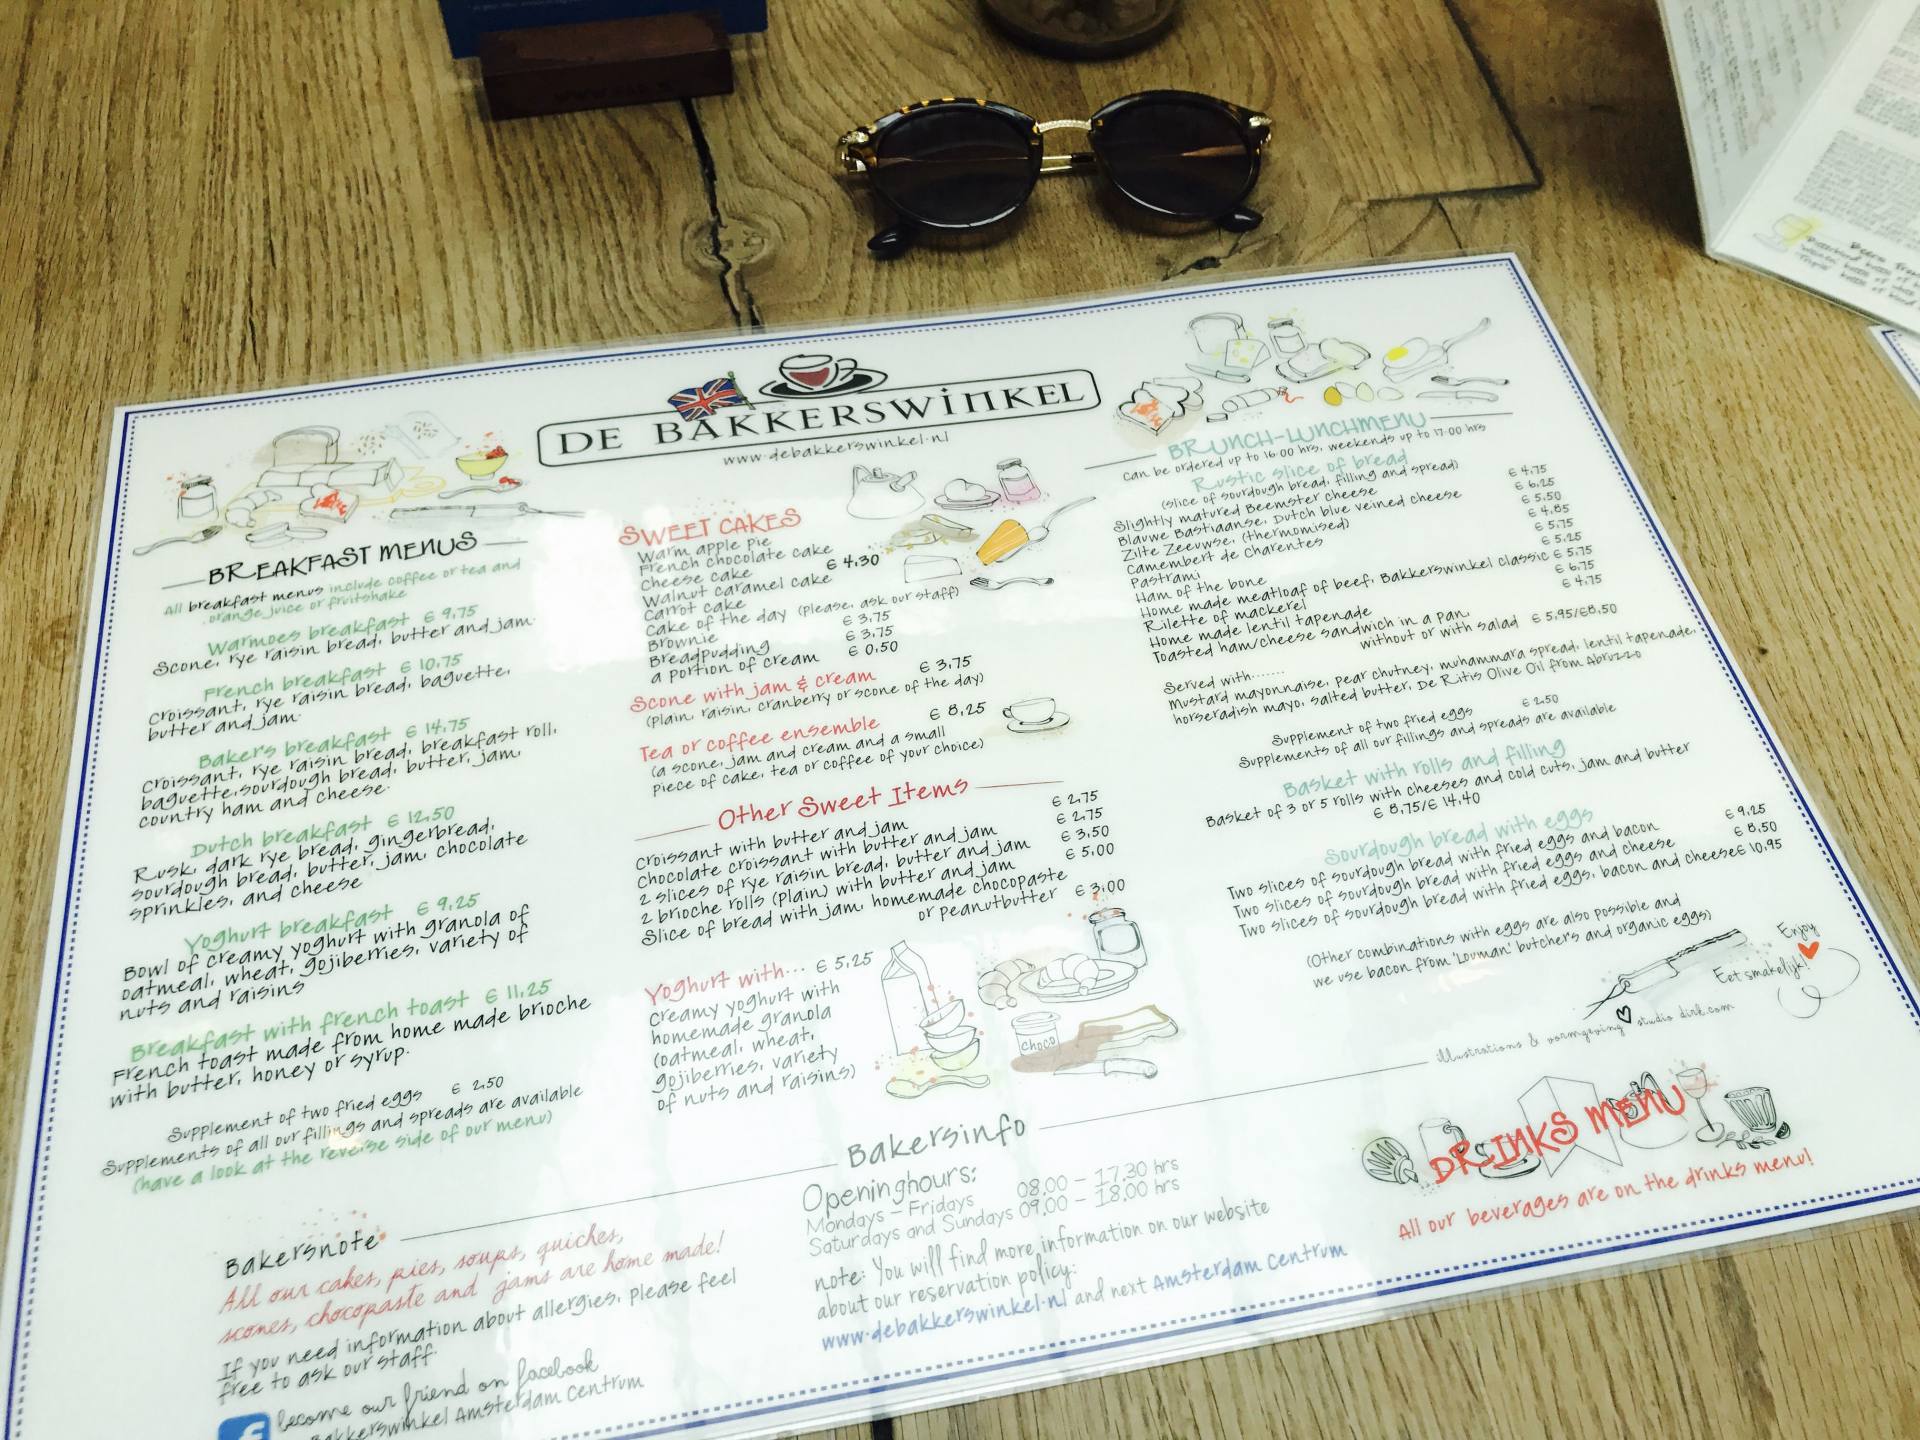 DE BAKKERSWINKEL
www.debakkerswinkel.nl
BREAKFAST MENUS
All breakfast menus include coffee or tea and
orange juice or fruitshake
Warmoes breakfast € 9,75
Scone, rye raisin bread, butter and jam.
French breakfast € 10,75
Croissant, rye raisin bread, baguette,
butter and jam.
Bakers breakfast € 14,75
Croissant, rye raisin bread, breakfast roll,
baguette, sourdough bread, butter, jam,
country ham and cheese.
Dutch breakfast € 12,50
Rusk, dark rye bread, gingerbread,
sourdough bread, butter, jam, chocolate
sprinkles, and cheese
Yoghurt breakfast € 9,25
Bowl of creamy yoghurt with granola of
oatmeal, wheat, gojiberries, variety of
nuts and raisins
Breakfast with french toast € 11,25
French toast made from home made brioche
with butter, honey or syrup.
Supplement of two fried eggs € 2,50
Supplements of all our fillings and spreads are available
(have a look at the reverse side of our menu)
SWEET CAKES
Warm apple pie
French chocolate cake
Cheese cake € 4,30
Walnut caramel cake
Carrot cake
Cake of the day (please, ask our staff)
Brownie € 3,75
Breadpudding € 3,75
a portion of cream € 0,50
Scone with jam & cream € 3,75
(plain, raisin, cranberry or scone of the day)
Tea or coffee ensemble € 8,25
(a scone, jam and cream and a small
piece of cake, tea or coffee of your choice)
Other Sweet Items
Croissant with butter and jam € 2,75
Chocolate croissant with butter and jam € 2,75
2 slices of rye raisin bread, butter and jam € 3,50
2 brioche rolls (plain) with butter and jam € 5,00
Slice of bread with jam, homemade chocopaste
or peanutbutter € 3,00
Yoghurt with... € 5,25
Creamy yoghurt with
homemade granola
(oatmeal, wheat,
gojiberries, variety
of nuts and raisins)
choco
BRUNCH-LUNCHMENU
can be ordered up to 16.00 hrs, weekends up to 17.00 hrs
Rustic slice of bread
(slice of sourdough bread, filling and spread)
Slightly matured Beemster cheese € 4,75
Blauwe Bastiaanse, Dutch blue veined cheese € 6,25
Zilte Zeeuwse, (thermomised) € 5,50
Camembert de Charentes € 4,85
Pastrami € 5,75
Ham of the bone € 5,25
Home made meatloaf of beef, Bakkerswinkel classic € 5,75
Rilette of mackerel € 6,75
Home made lentil tapenade € 4,75
Toasted ham/cheese sandwich in a pan,
without or with salad € 5,95/€8,50
Served with.......
mustard mayonnaise, pear chutney, muhammara spread, lentil tapenade,
horseradish mayo, salted butter, De Ritis Olive Oil from Abruzzo
Supplement of two fried eggs € 2,50
Supplements of all our fillings and spreads are available
Basket with rolls and filling
Basket of 3 or 5 rolls with cheeses and cold cuts, jam and butter
€ 8,75/€ 14,40
Sourdough bread with eggs
Two slices of sourdough bread with fried eggs and bacon € 9,25
Two slices of sourdough bread with fried eggs and cheese € 8,50
Two slices of sourdough bread with fried eggs, bacon and cheese € 10,95
(Other combinations with eggs are also possible and
we use bacon from 'Louman' butchers and organic eggs)
Enjoy
Eet smakelijk!
illustrations & vormgeving studio dirk.com
DRINKS MENU
All our beverages are on the drinks menu!
Bakersinfo
Openinghours:
Mondays - Fridays 08.00 - 17.30 hrs
Saturdays and Sundays 09.00 - 18.00 hrs
note: You will find more information on our website
about our reservation policy:
www.debakkerswinkel.nl and next Amsterdam Centrum
Bakersnote
All our cakes, pies, soups, quiches,
scones, chocopaste and jams are home made!
If you need information about allergies, please feel
free to ask our staff.
become our friend on facebook
Bakkerswinkel Amsterdam Centrum